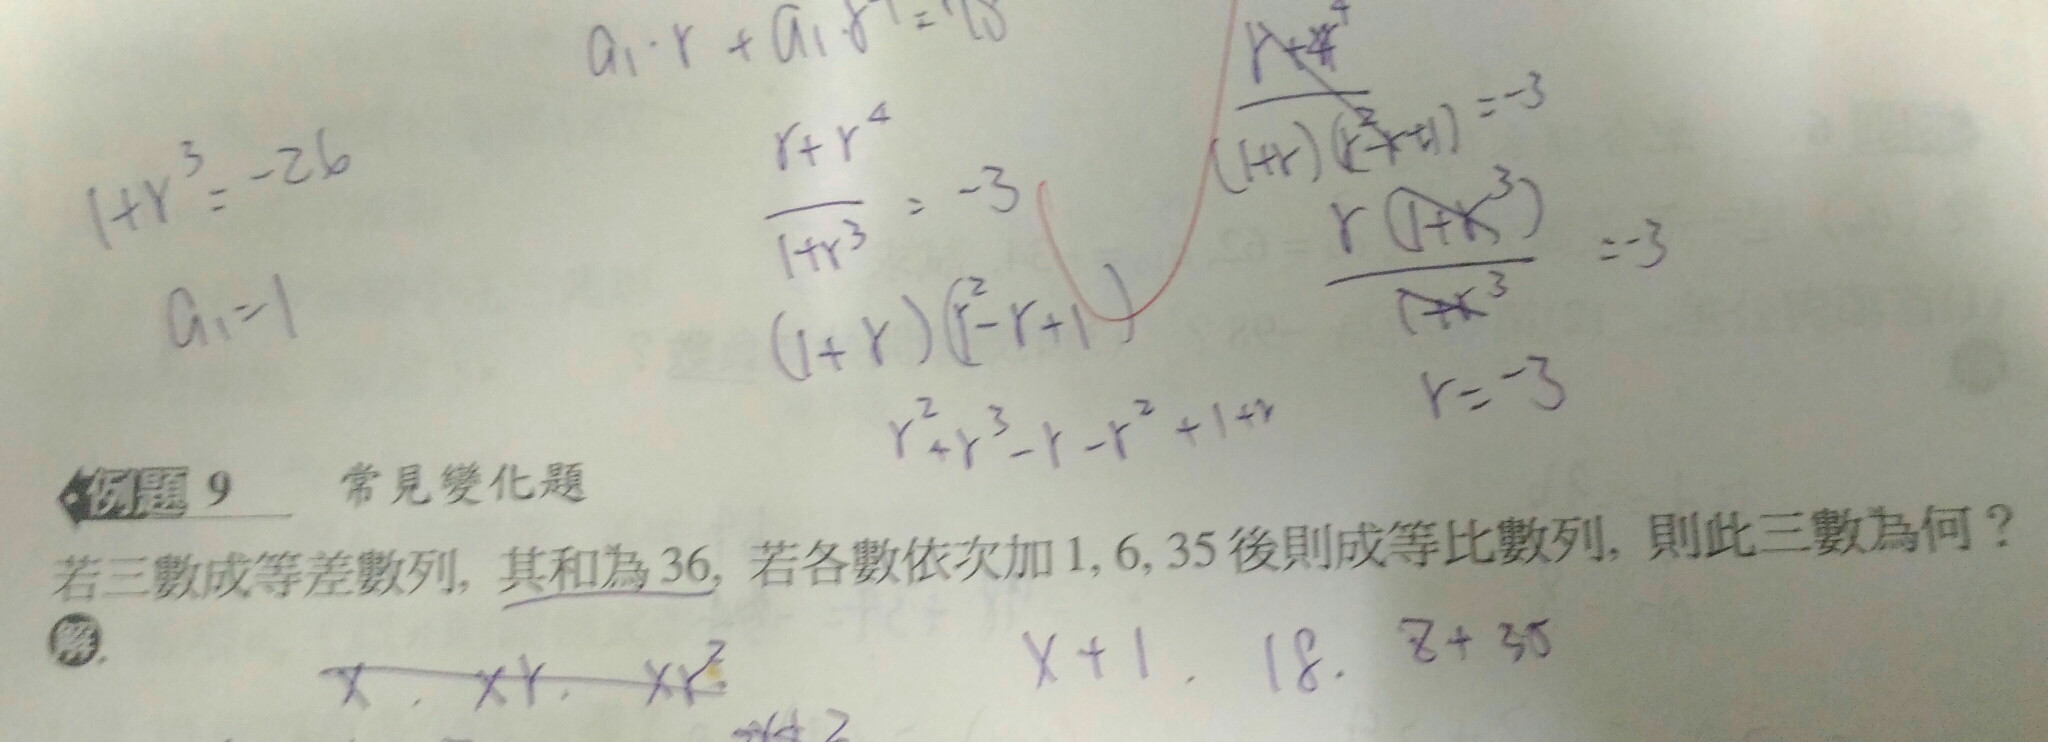 a₁·r + a₁·r⁴ = 78
1+r³ = -26
a₁ = 1
r+r⁴
1+r³
= -3
(1+r)(r²-r+1)
r²+r³-r-r²+1+r
(1+r)(r²-r+1)
= -3
r(1+r³)
1+r³
= -3
r = -3
例題 9 常見變化題
若三數成等差數列, 其和為 36, 若各數依次加 1, 6, 35 後則成等比數列, 則此三數為何？
解
x . xr . xr²
x+1 . 18 . z+35